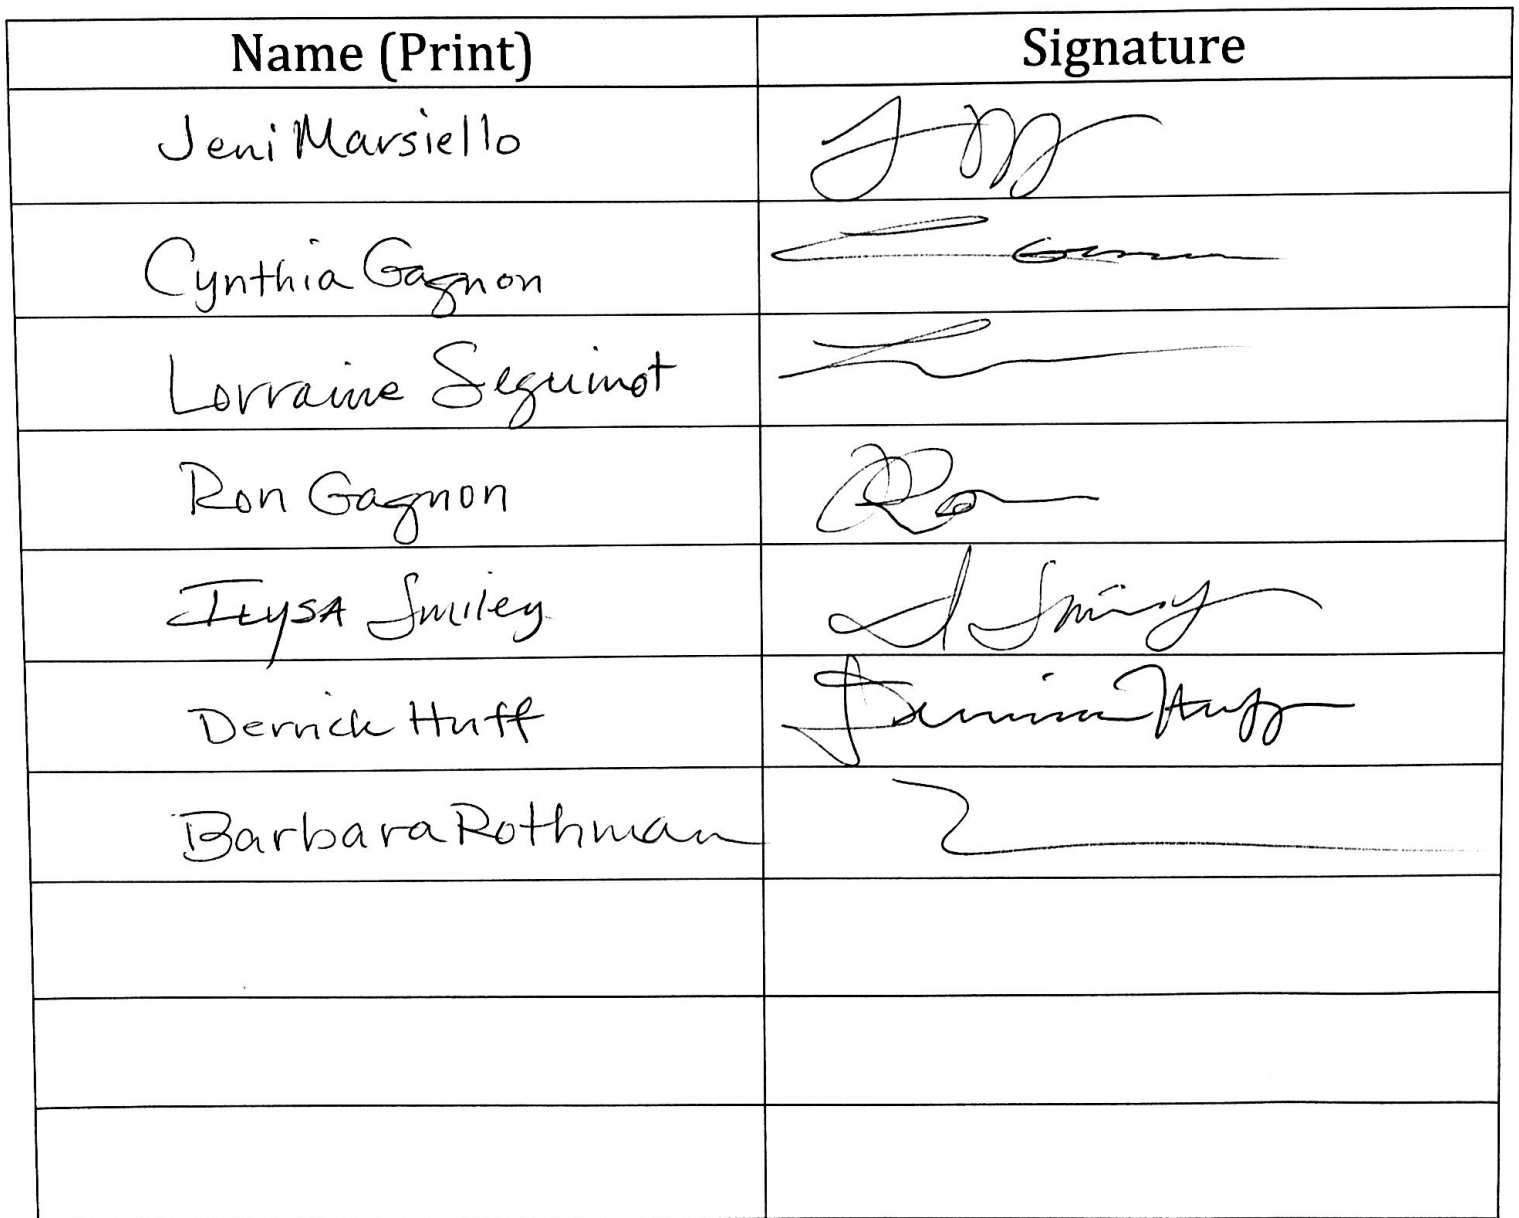 Name (Print) Signature
Jeni Marsiello
Cynthia Gagnon
Lorraine Seguinot
Ron Gagnon
Ilysa Smiley
Derrick Huff Huff
Barbara Rothman